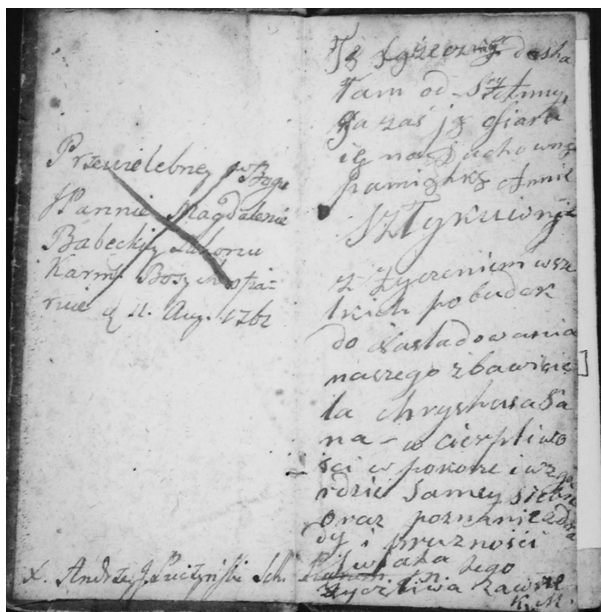 Przewielebney w Bogu
JPannie Magdalenie
Babeckiy Zakonu
Karm: Bosych ofia-
ruie d 11. Aug. 1761
X. Andrzey J. Sch.
Tę dusha
Tam od
Ja zaś ją ofiaru
ię na duchowną
pamiątkę Annie
Sztykuwney
z życzeniem wsze
lkich pobudek
do nasladowania
naszego zbawicie
la chrystusa Pa
na - w cierpliwo
ści w pokorze i wzga
rdzie samey siebie
oraz poznanie zdra
dy i prozności
Swiata tego
życzliwa zawsze